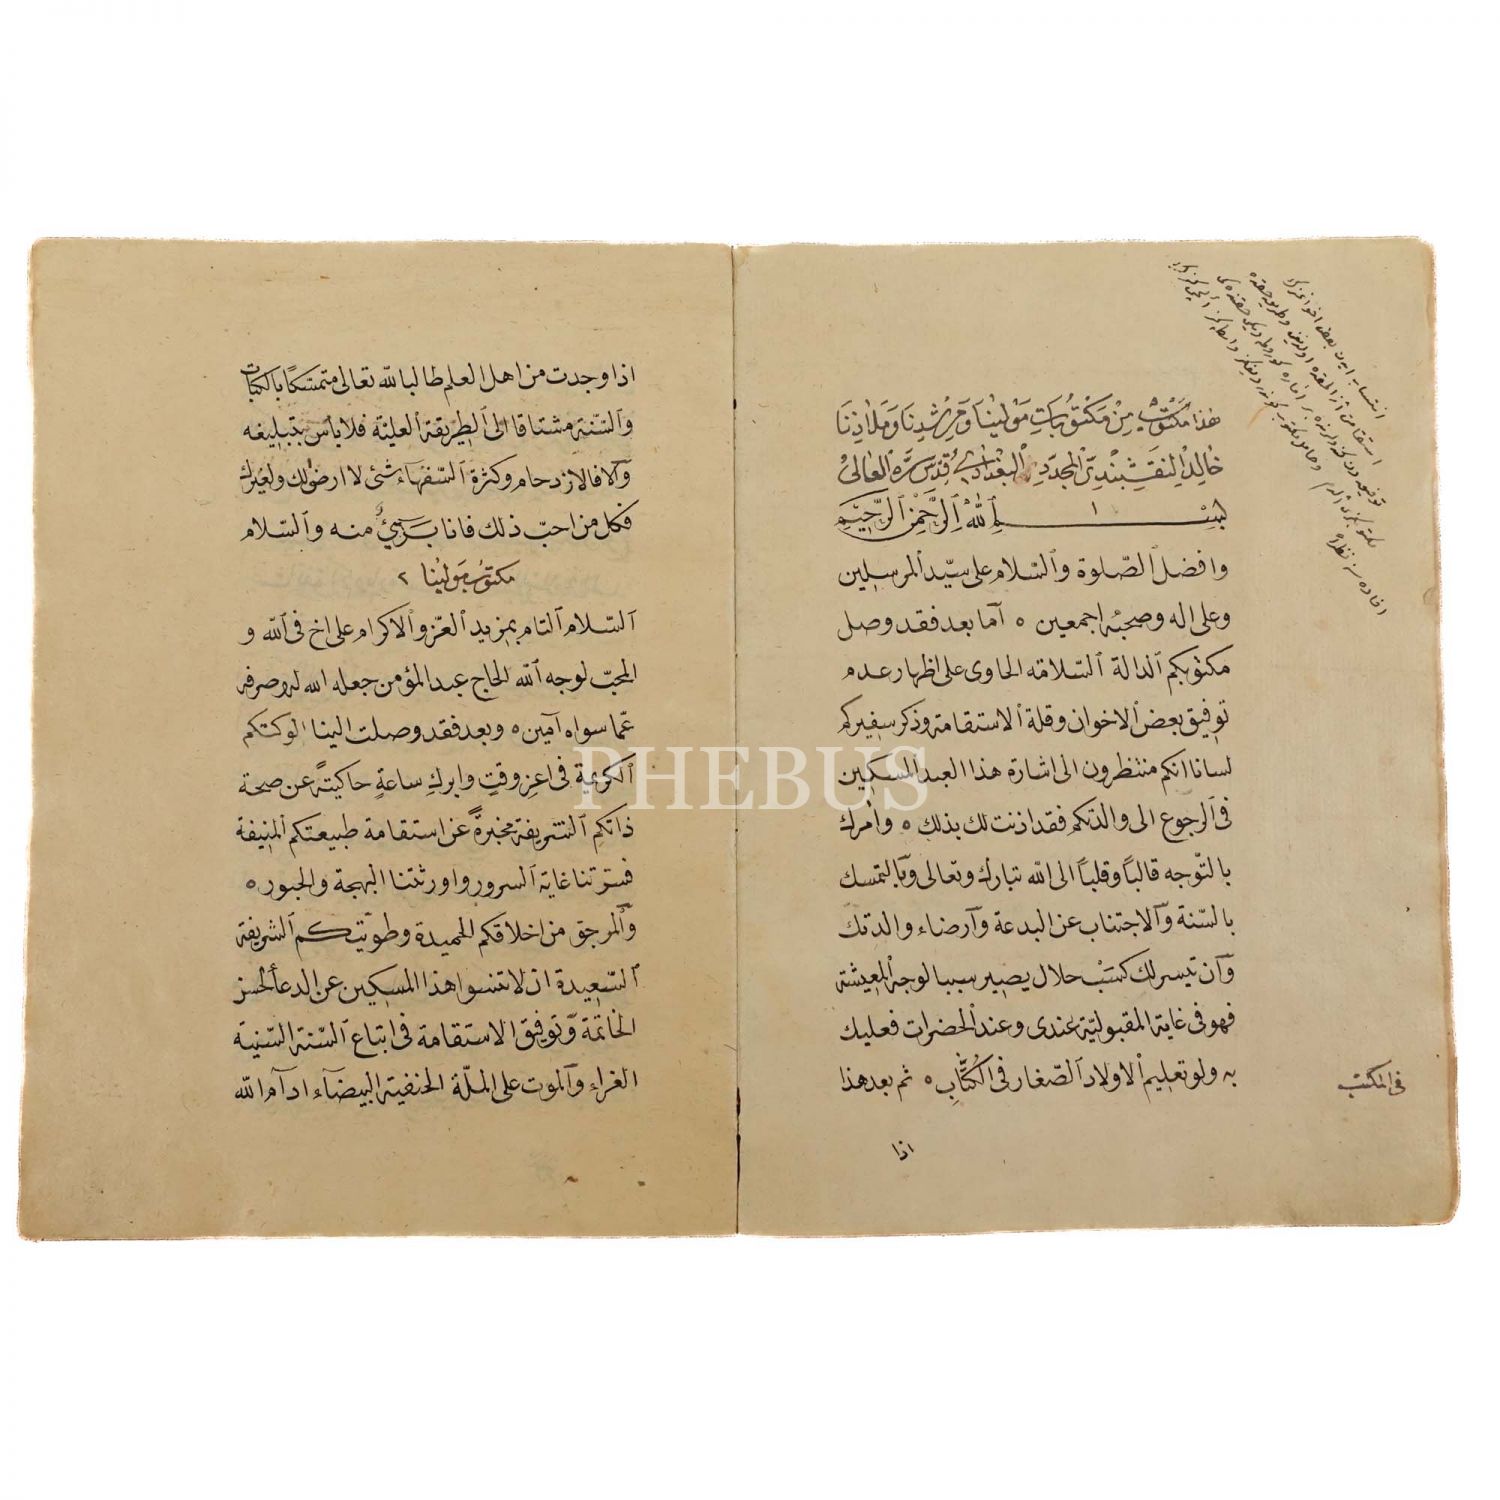 هذا مكتوب من مكتوبات مولينا ومرشدنا وملاذنا
خالد النقشبندى المجددى البغدادى قدس سره العالى
١
بسم الله الرحمن الرحيم
وافضل الصلوة والسلام على سيد المرسلين
وعلى اله وصحبه اجمعين ٥ اما بعد فقد وصل
مكتوبكم الدالة السلامة الحاوى على اظهار عدم
توفيق بعض الاخوان وقلة الاستقامة وذكر سفيركم
لسانا انكم منتظرون الى اشارة هذا العبد المسكين
فى الرجوع الى والدتكم فقد اذنت لك بذلك ٥ وأمرك
بالتوجه قالباً وقلباً الى الله تبارك وتعالى وبالتمسك
بالسنة والاجتناب عن البدعة وارضاء والدتك
وان تيسر لك كسب حلال يصير سببا لوجه المعيشة
فهو فى غاية المقبولية عندى وعند الحضرات فعليك
به ولو تعليم الاولاد الصغار فى الكتّاب ٥ ثم بعد هذا
فى المكتب
اذا
اذا وجدت من اهل العلم طالبا لله تعالى متمسكا بالكتاب
والسنة مشتاقا الى الطريقة العلية فلا بأس بتبليغه
والا فالازدحام وكثرة السفهاء شئى لا ارضى لك ولغيرك
فكل من احب ذلك فانا برىء منه والسلام
مكتوب مولينا ٢
السلام التام بمزيد العز والاكرام على اخ فى الله و
المحب لوجه الله الحاج عبد المؤمن جعله الله له وصرفه
عما سواه آمين ٥ وبعد فقد وصلت الينا الوكتكم
الكريمة فى اعز وقت وابرك ساعة حاكيتة عن صحة
ذاتكم الشريفة مخبرة عن استقامة طبيعتكم المنيفة
فسرتنا غاية السرور واورثتنا البهجة والحبور ٥
والمرجو من اخلاقكم الحميدة وطويتكم الشريفة
السعيدة ان لا تنسوا هذا المسكين عن الدعا لحسن
الخاتمة وتوفيق الاستقامة فى اتباع السنة السنية
الغراء والموت على الملة الحنفية البيضاء ادام الله
PHEBUS